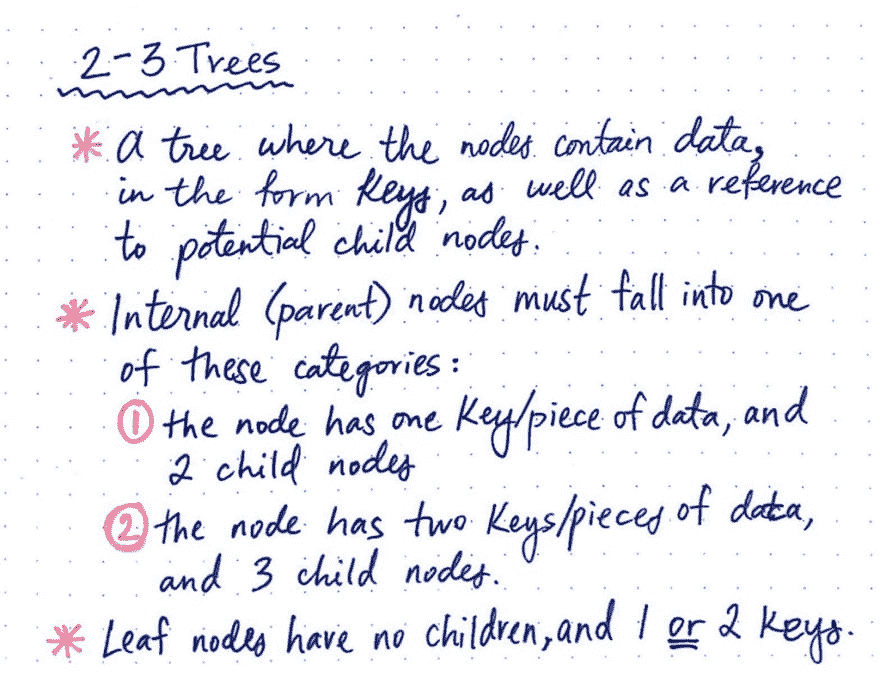 2-3 Trees
* A tree where the nodes contain data,
in the form keys, as well as a reference
to potential child nodes.
* Internal (parent) nodes must fall into one
of these categories:
① the node has one key/piece of data, and
2 child nodes
② the node has two keys/pieces of data,
and 3 child nodes.
* Leaf nodes have no children, and 1 or 2 keys.